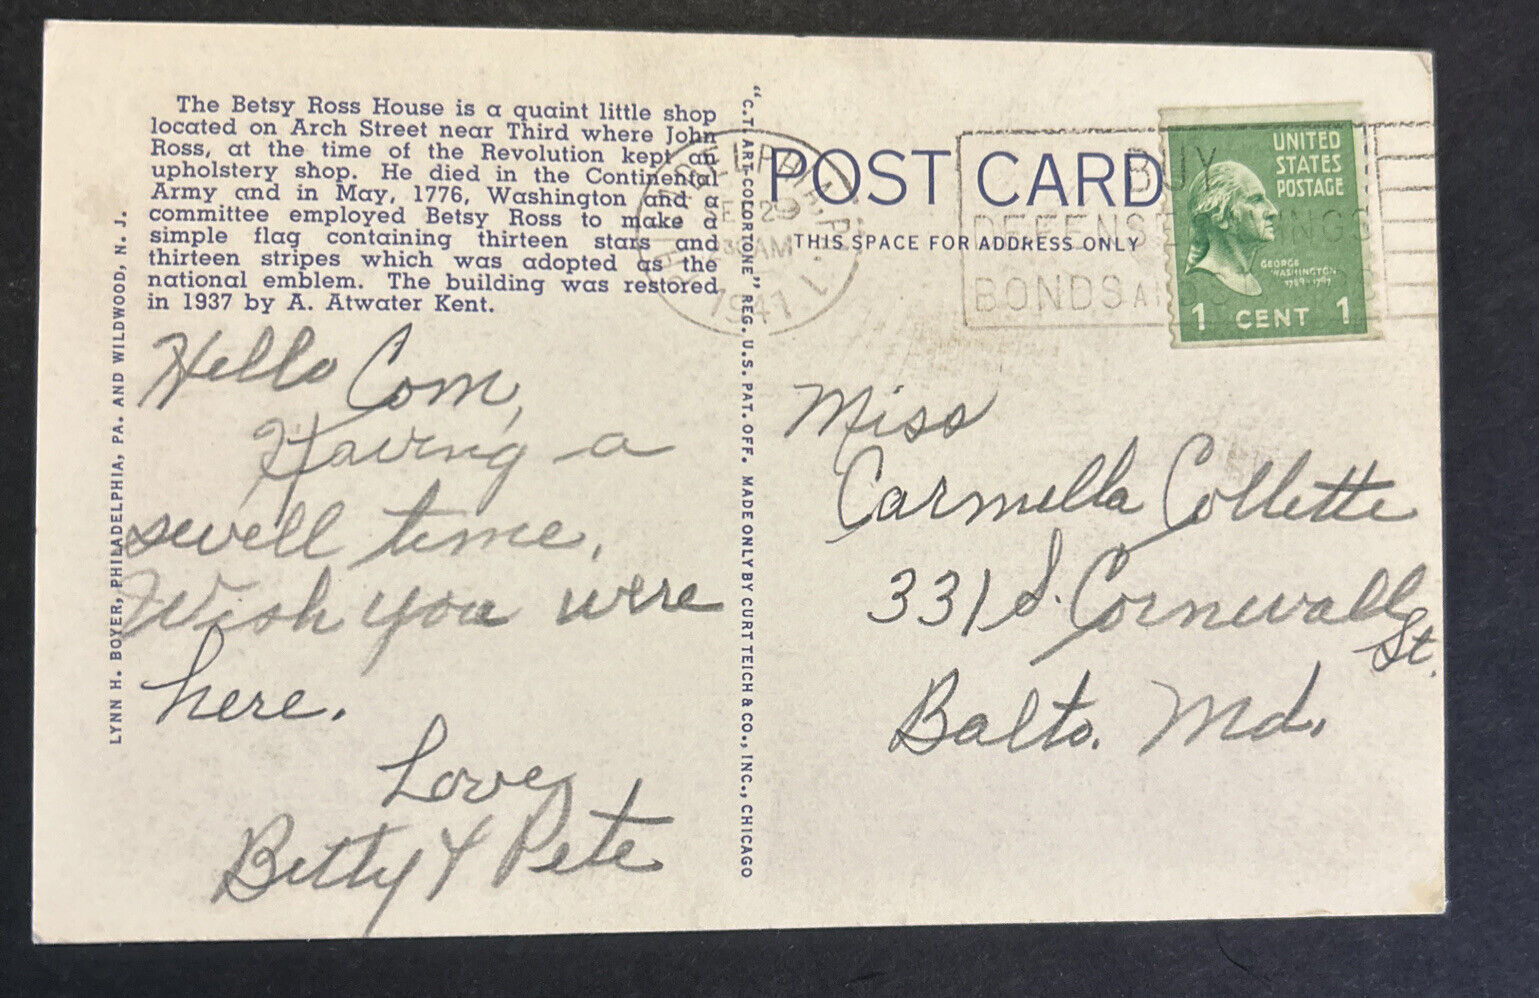 The Betsy Ross House is a quaint little shop
located on Arch Street near Third where John
Ross, at the time of the Revolution kept an
upholstery shop. He died in the Continental
Army and in May, 1776, Washington and a
committee employed Betsy Ross to make a
simple flag containing thirteen stars and
thirteen stripes which was adopted as the
national emblem. The building was restored
in 1937 by A. Atwater Kent.
Hello Com,
Having a
swell time.
Wish you were
here.
Love
Betty & Pete
LYNN H. BOYER, PHILADELPHIA, PA. AND WILDWOOD, N. J.
"C.T. ART-COLORTONE" REG. U.S. PAT. OFF. MADE ONLY BY CURT TEICH & CO., INC., CHICAGO
POST CARD
THIS SPACE FOR ADDRESS ONLY
PHILADELPHIA, PA.
1941
AM
BUY
DEFENSE SAVINGS
BONDS
UNITED
STATES
POSTAGE
GEORGE
WASHINGTON
1789-1797
1 CENT 1
Miss
Carmella Collette
331 S. Cornewall
St.
Balto. Md.